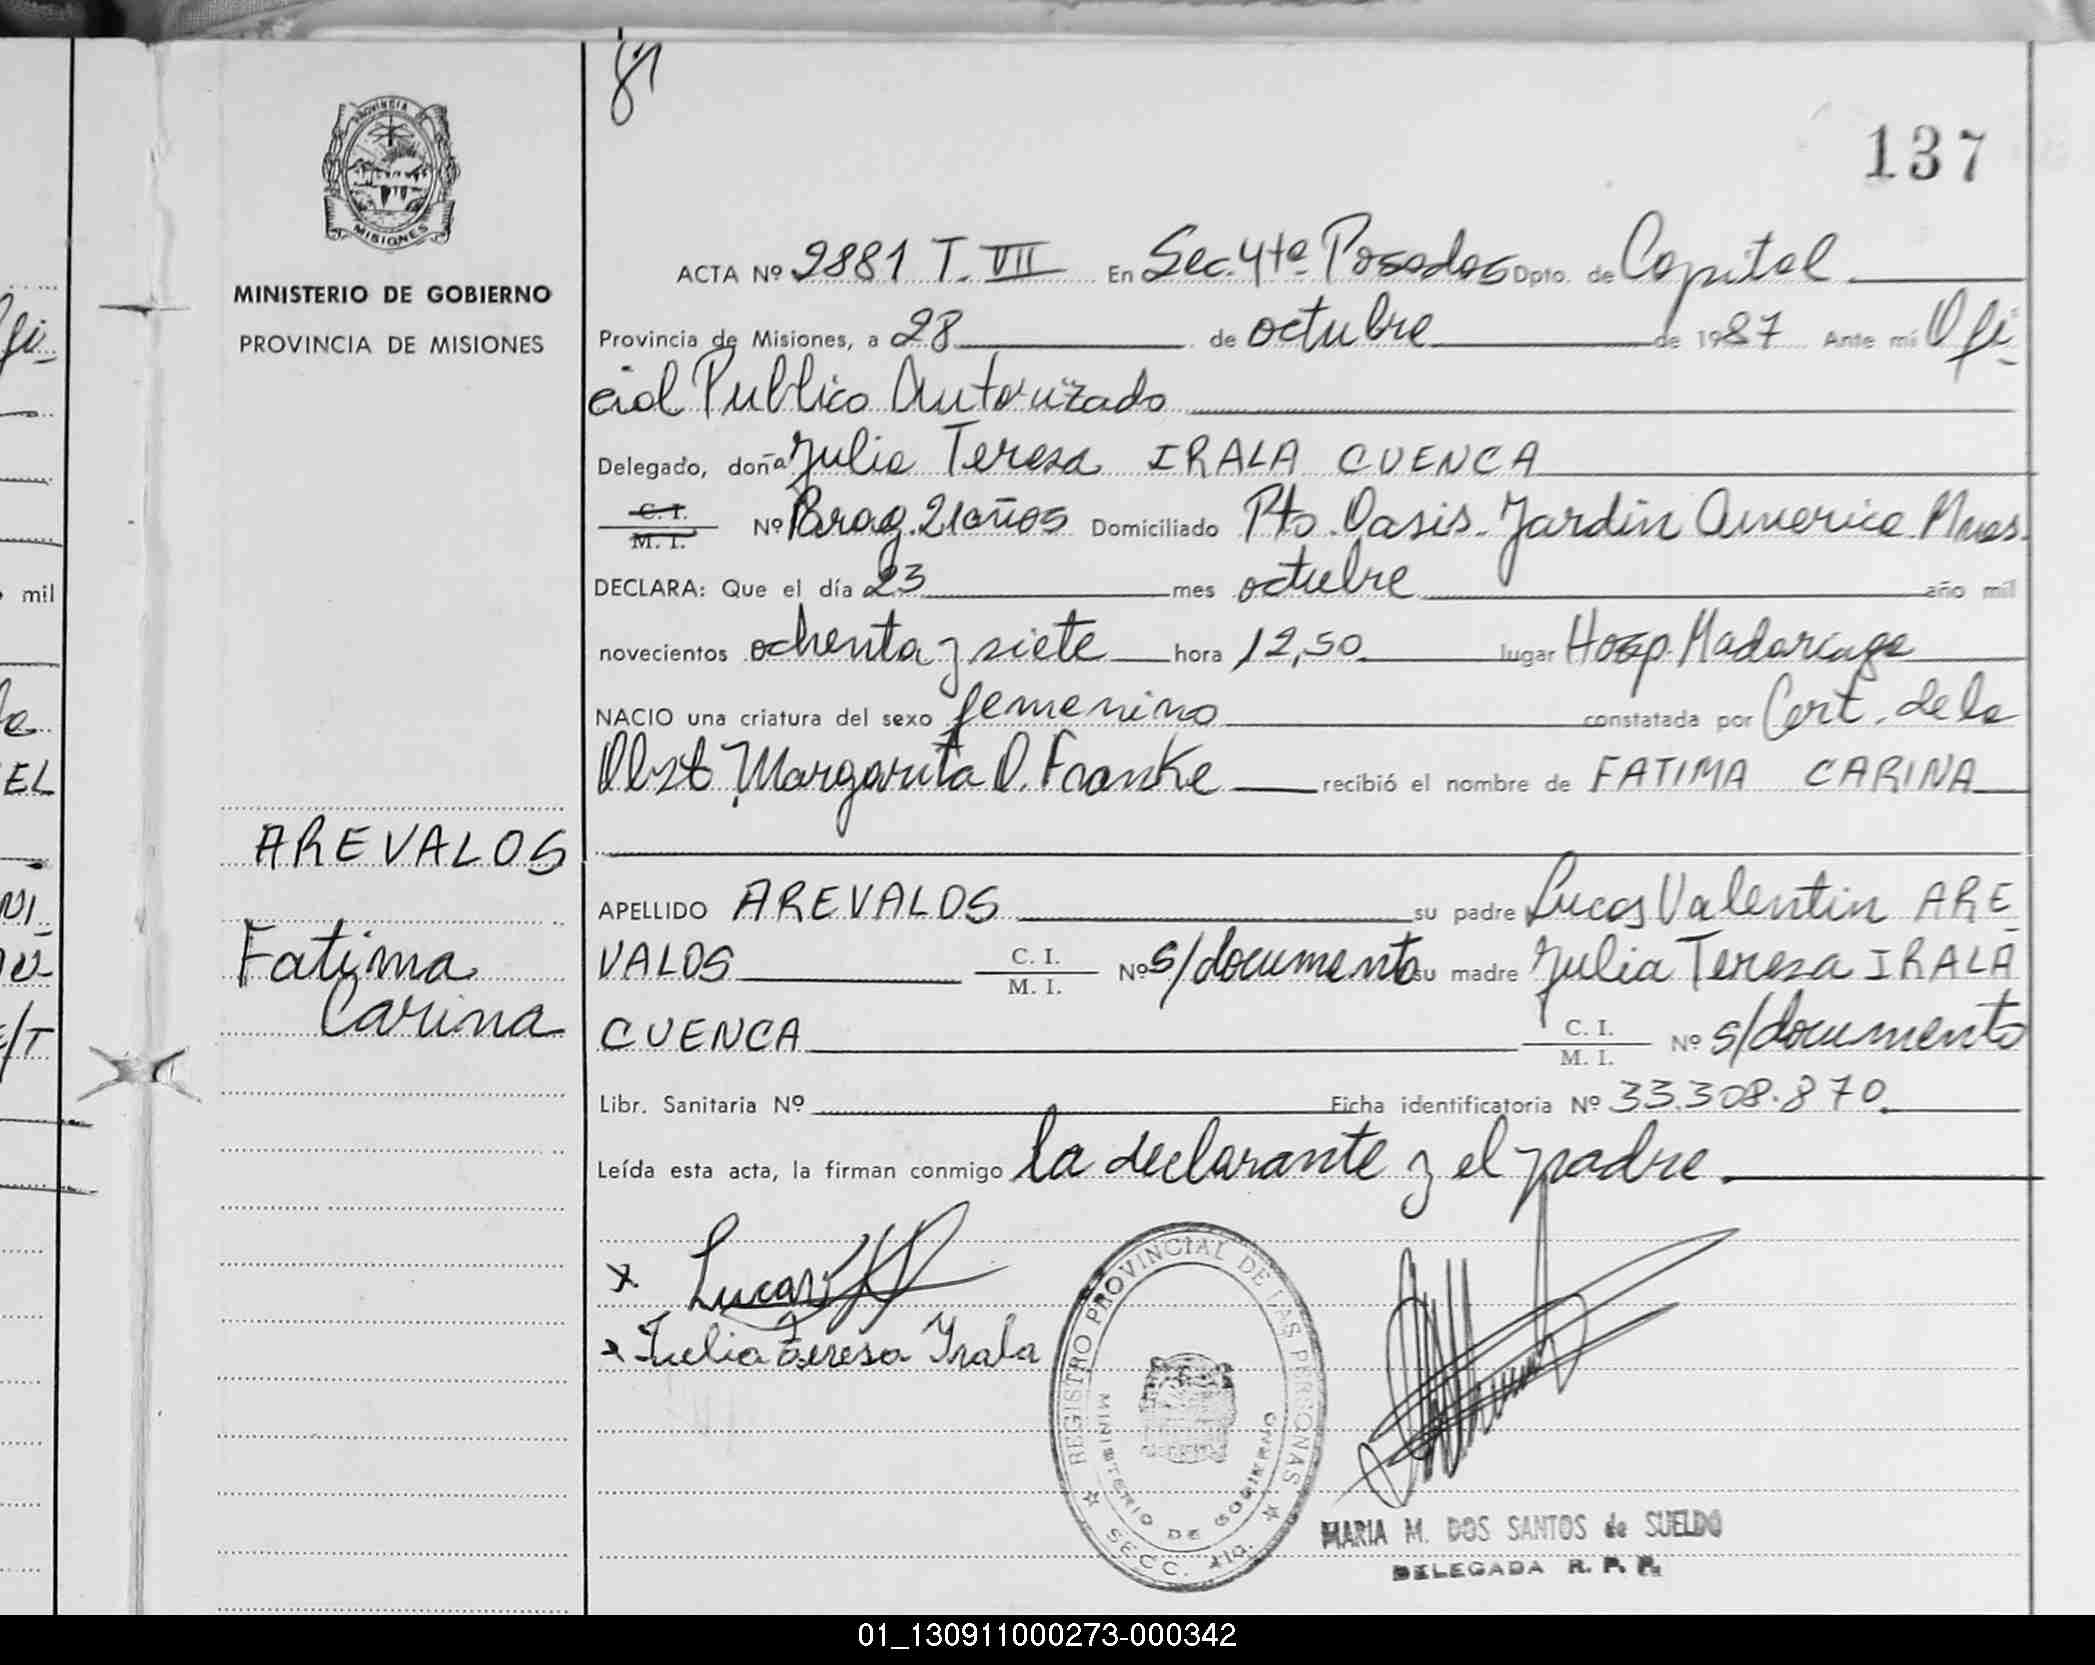 PROVINCIA
MISIONES
MINISTERIO DE GOBIERNO
PROVINCIA DE MISIONES
AREVALOS
Fatima
Carina
137
ACTA Nº 2881 T. VII En Sec. 4ta Posadas Dpto. de Capital
Provincia de Misiones, a 28 de octubre de 1987 Ante mí Ofi-
cial Publico Autorizado
Delegado, doña Julia Teresa IRALA CUENCA
C. I. / M. I. Nº Parag. 21 años Domiciliado Pto. Oasis. Jardin America Mnes.
DECLARA: Que el día 23 mes octubre año mil
novecientos ochenta y siete hora 12,50 lugar Hosp. Madariaga
NACIO una criatura del sexo femenino constatada por Cert. de la
Obst. Margarita O. Franke recibió el nombre de FATIMA CARINA
APELLIDO AREVALOS su padre Lucas Valentin ARE
VALOS C. I. / M. I. Nº s/documento su madre Julia Teresa IRALA
CUENCA C. I. / M. I. Nº s/documento
Libr. Sanitaria Nº Ficha identificatoria Nº 33.308.870
Leída esta acta, la firman conmigo la declarante y el padre.
x Lucas
x Julia Teresa Irala
REGISTRO PROVINCIAL DE LAS PERSONAS
MINISTERIO DE GOBIERNO
SECC. 4ta.
MARIA M. DOS SANTOS de SUELDO
DELEGADA R. P. P.
01_130911000273-000342
mil
EL